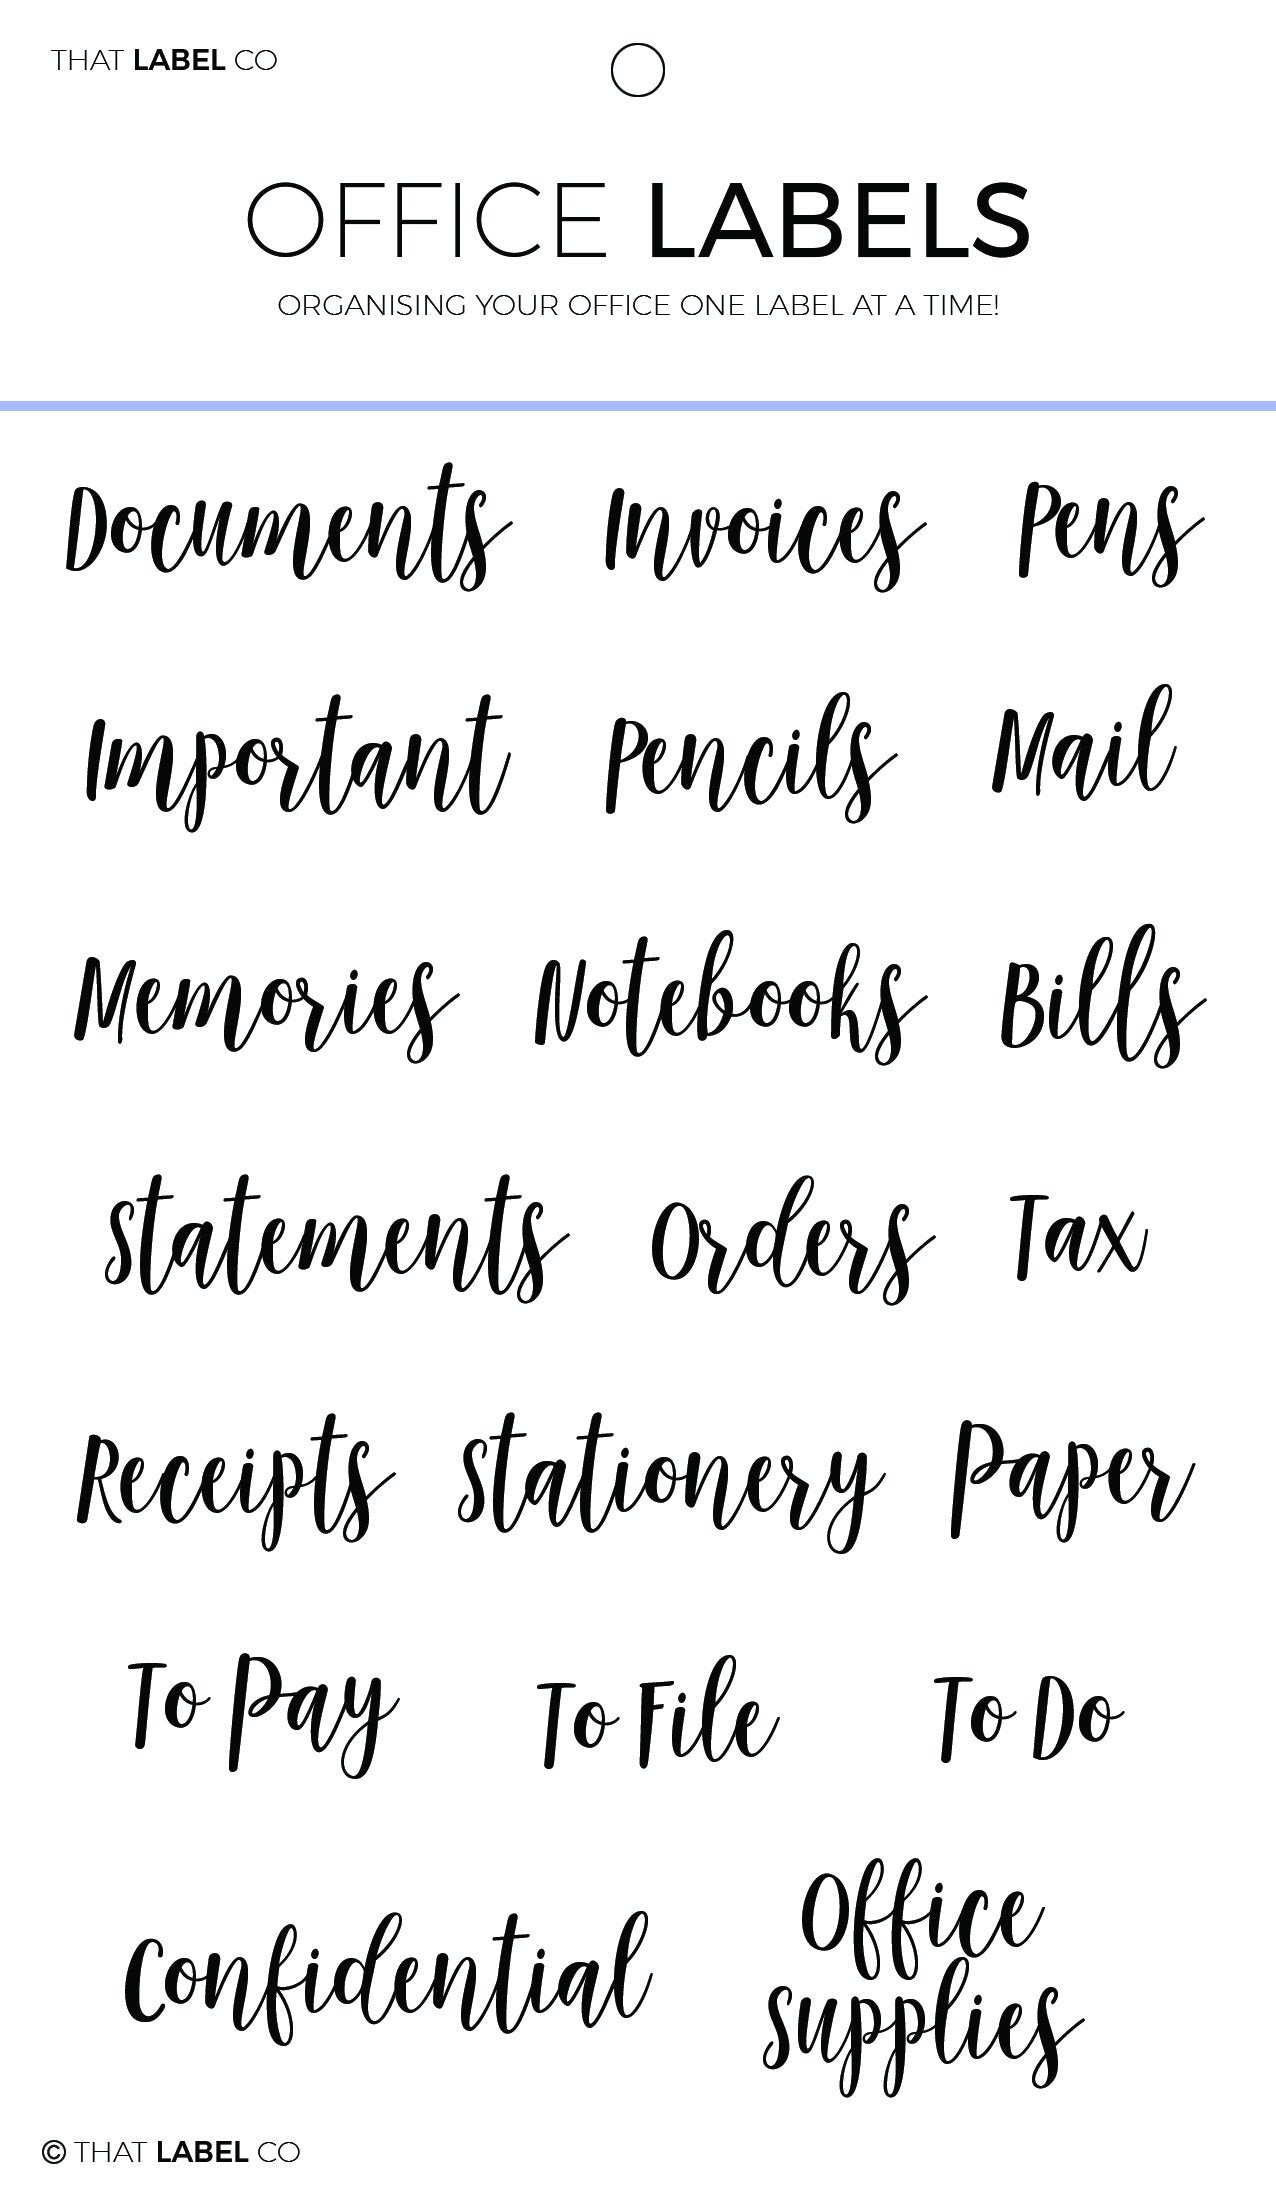 THAT LABEL CO
OFFICE LABELS
ORGANISING YOUR OFFICE ONE LABEL AT A TIME!
Documents Invoices Pens
Important Pencils Mail
Memories Notebooks Bills
Statements Orders Tax
Receipts Stationery Paper
To Pay To File To Do
Confidential Office
Supplies
© THAT LABEL CO